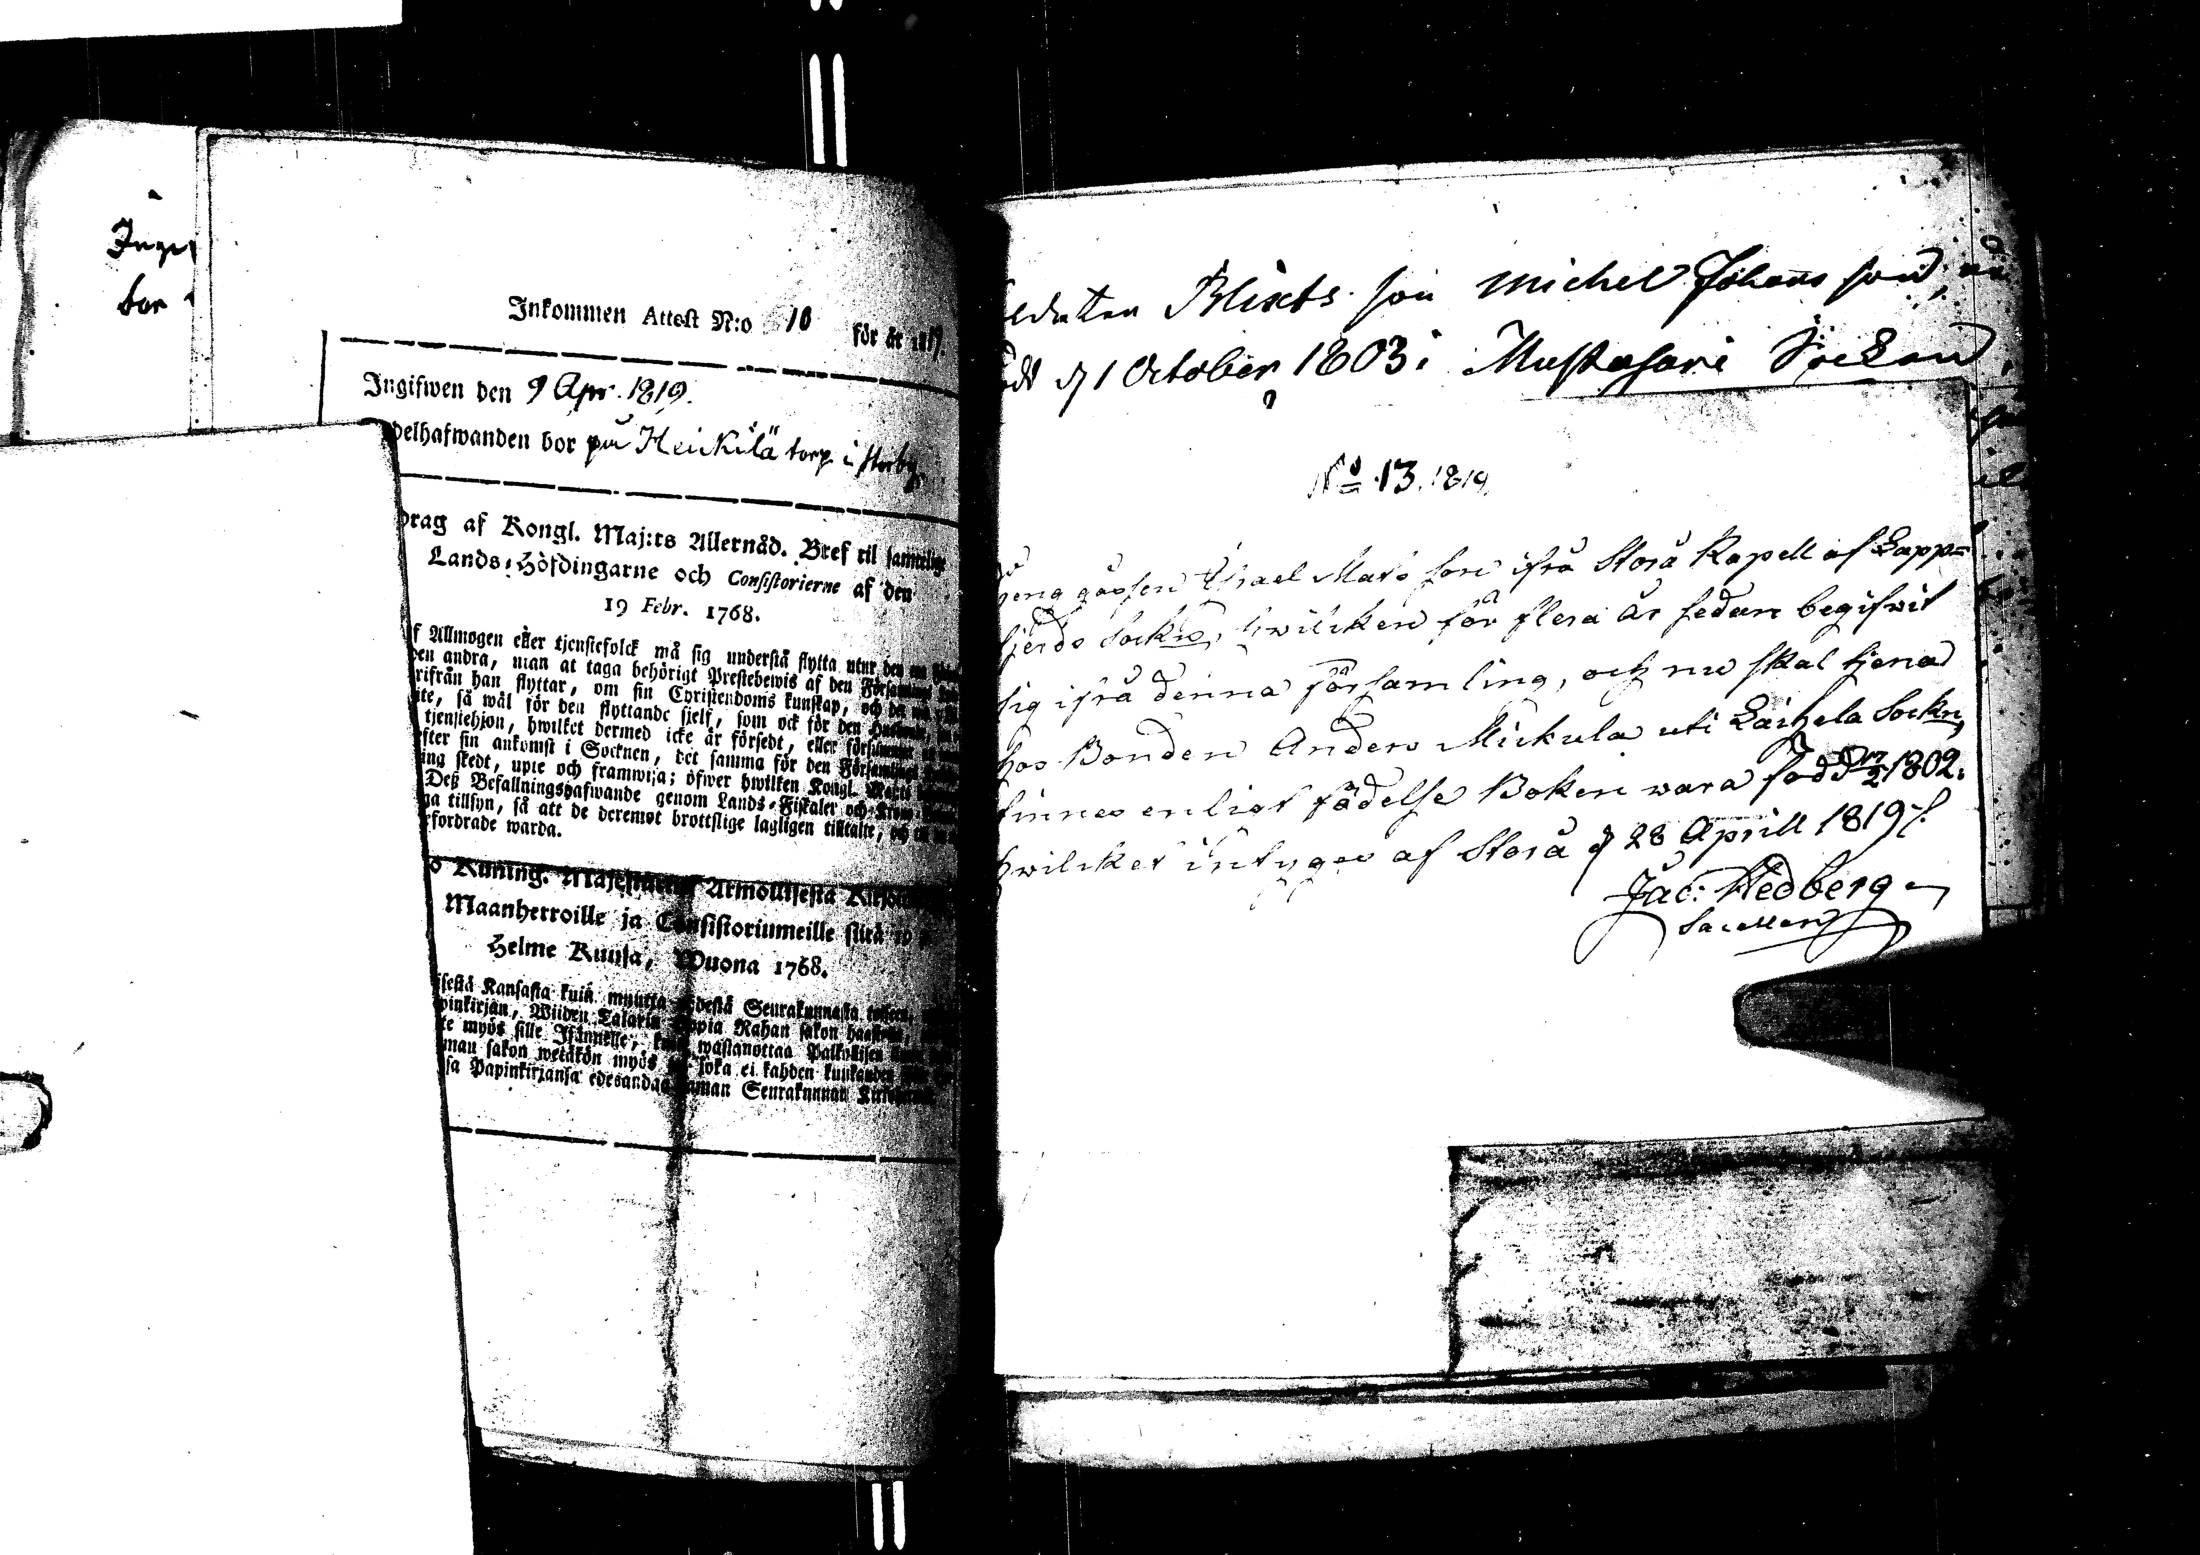 Inge
bor
Inkommen Attest N:o 10 för år 1819.
Ingifwen den 9 Apr. 1819.
delhafwanden bor på Heickilä torp i Storby
drag af Kongl. Maj:ts Allernåd. Bref til samtelige
Lands-Höfdingarne och Consistorierne af den
19 Febr. 1768.
f Allmogen eller tjenstefolck må sig understå flytta utur den ena
en andra, utan at taga behörigt Prestebewis af den Församling
rifrån han flyttar, om sin Christendoms kunskap, och det wid
ite, så wäl för den flyttande sjelf, som ock för den
tjenstehjon, hwilket dermed icke är försedt, eller försummar
fter sin ankomst i Socknen, det samma för den Församlings
ing skedt, upte och framwisa; öfwer hwilken Kongl. Maj:ts
Deß Befallningshafwande genom Lands-Fiskaler och Krono-
ga tillsyn, så att de deremot brottslige lagligen tilltalte, och
fordrade warda.
o Kuning. Majestätin Armollisesta Kirjasta
Maanherroille ja Consistoriumeille siitä 19 p.
Helme Kuusa, Wuona 1768.
isestä Kansasta kuin muutta yhdestä Seurakunnasta toiseen,
pinkirjan, Wiiden Talarin Hopia Rahan sakon haastolla,
te myös sille Isännälle, kuin wastanottaa Palkollisen
man sakon wetäkön myös se, joka ei kahden kuukauden
sa Papinkirjansa edesandaa saman Seurakunnan Kirkoherralle
ldaten Blixts son Michel Johansson, nu
ödd d 1 October 1803 i Mustasari Sockn
No 13. 1819.
Drenggåssen Israel Mats son ifrå Storå Kapell af Lapp=
fjerds Sockn, hwilcken för flera år sedan begifwit
sig ifrå denna församling, och nu skal tjena
hos Bonden Anders Mickula uti Laihela Sockn,
finnes enligt födelse Boken wara född d 17/2 1802.
hwilcket intygas af Storå d 28 Aprill 1819
Jac: Hedberg
Sacellan